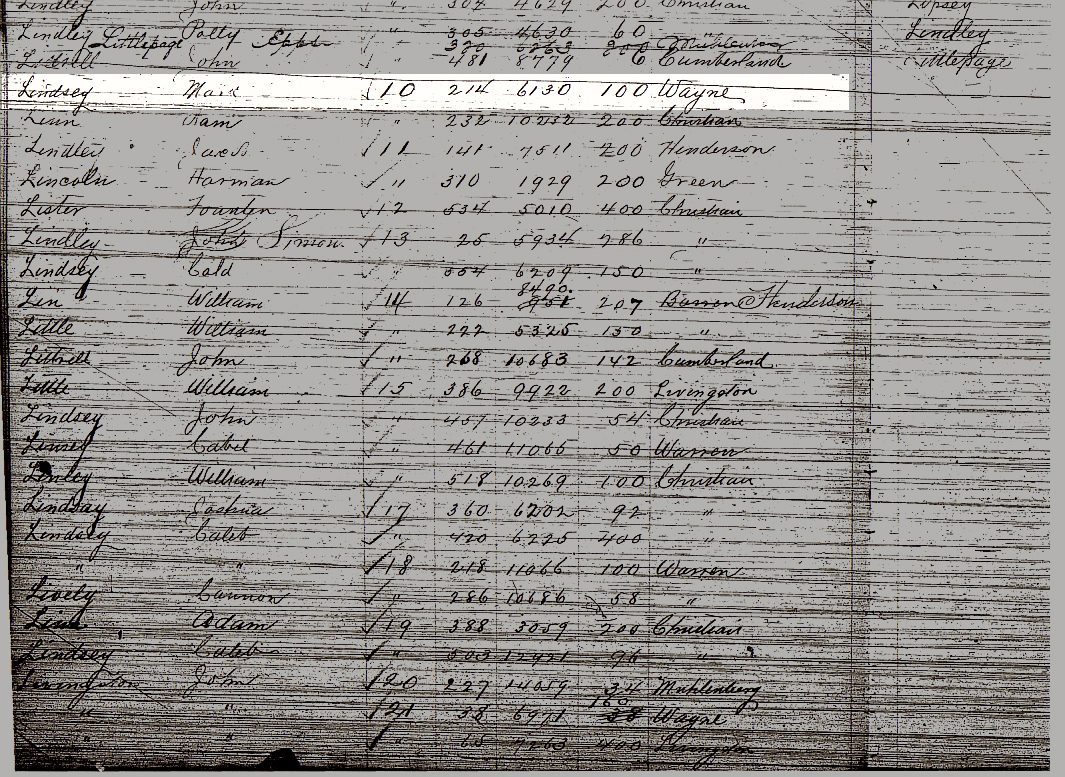 Lindley John " 304 4629 200 Christian Lipsey
Lindley Polly " 305 4630 60 " Lindley
Littlepage Epps " 320 200 Muhlenberg
Littrell John " 481 8779 6 Cumberland Littlepage
Lindsey 10 214 6130 100 Wayne
Linn " 232 10232 200 Christian
Lindley 11 141 7511 200 Henderson
Lincoln Harman " 310 1929 200 Green
Lister Founten 12 534 5010 400 Christian
Lindley John Simon 13 25 5934 286 "
Lindsey Cald " 554 6209 150 "
8490
Lin William 14 126 207 Barren & Henderson
Little William " 222 5325 130 "
Littrell John " 268 10683 142 Cumberland
Little William 15 386 9922 200 Livingston
Lindsey John " 457 10233 54 Christian
Linsey Cabel " 461 11066 50 Warren
Linley William " 518 10269 100 Christian
Lindsay Joshua 17 360 6202 92 "
Lindsey Caleb " 420 6225 400 "
" " 18 218 11066 100 Warren
Lively Cannon " 286 10686 58 "
Linn Adam 19 388 3059 200 Christian
Lindsey Caleb " 503 12921 96 "
Livingston John 20 227 14059 34 Muhlenberg
160
" " 21 38 6971 38 Wayne
" " " 400 Livingston